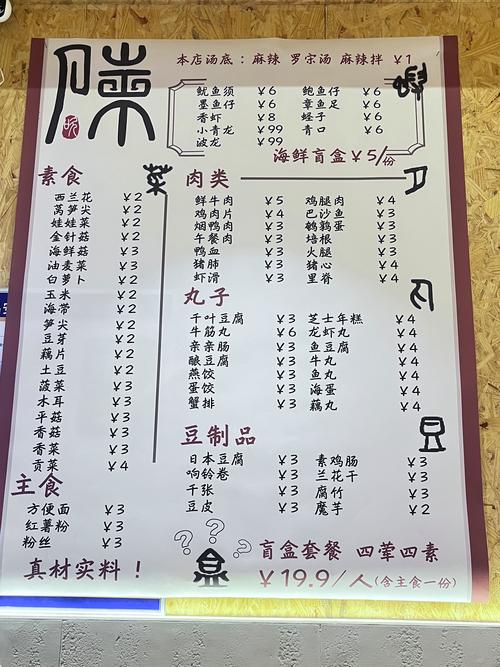 本店汤底：麻辣 罗宋汤 麻辣拌 ¥1
鱿鱼须 ¥6 鲍鱼仔 ¥6
墨鱼仔 ¥6 章鱼足 ¥6
香虾 ¥8 蛏子 ¥6
小青龙 ¥99 青口 ¥6
波龙 ¥99
海鲜盲盒¥5/份
素食 菜
西兰花 ¥2
莴笋尖 ¥2
娃娃菜 ¥2
金针菇 ¥2
海鲜菇 ¥3
油麦菜 ¥3
白萝卜 ¥2
玉米 ¥2
海带 ¥2
笋尖 ¥2
豆芽 ¥2
藕片 ¥2
土豆 ¥2
菠菜 ¥3
木耳 ¥3
平菇 ¥3
香菇 ¥3
香菜 ¥3
贡菜 ¥4
主食
方便面 ¥3
红薯粉 ¥3
粉丝 ¥3
真材实料！
肉类
鲜牛肉 ¥5 鸡腿肉 ¥4
鸡肉片 ¥4 巴沙鱼 ¥3
烟鸭肉 ¥3 鹌鹑蛋 ¥3
午餐肉 ¥3 培根 ¥3
鸭血 ¥3 火腿 ¥3
猪肺 ¥3 猪心 ¥4
虾滑 ¥3 里脊 ¥4
丸子
千叶豆腐 ¥3 芝士年糕 ¥4
牛筋丸 ¥6 龙虾丸 ¥4
亲亲肠 ¥3 鱼豆腐 ¥4
酿豆腐 ¥3 牛丸 ¥4
燕饺 ¥3 鱼丸 ¥4
蛋饺 ¥3 海蛋 ¥4
蟹排 ¥3 藕丸 ¥4
豆制品
日本豆腐 ¥3 素鸡肠 ¥3
响铃卷 ¥3 兰花干 ¥3
千张 ¥3 腐竹 ¥3
豆皮 ¥3 魔芋 ¥2
盲盒套餐 四荤四素
¥19.9/人(含主食一份)